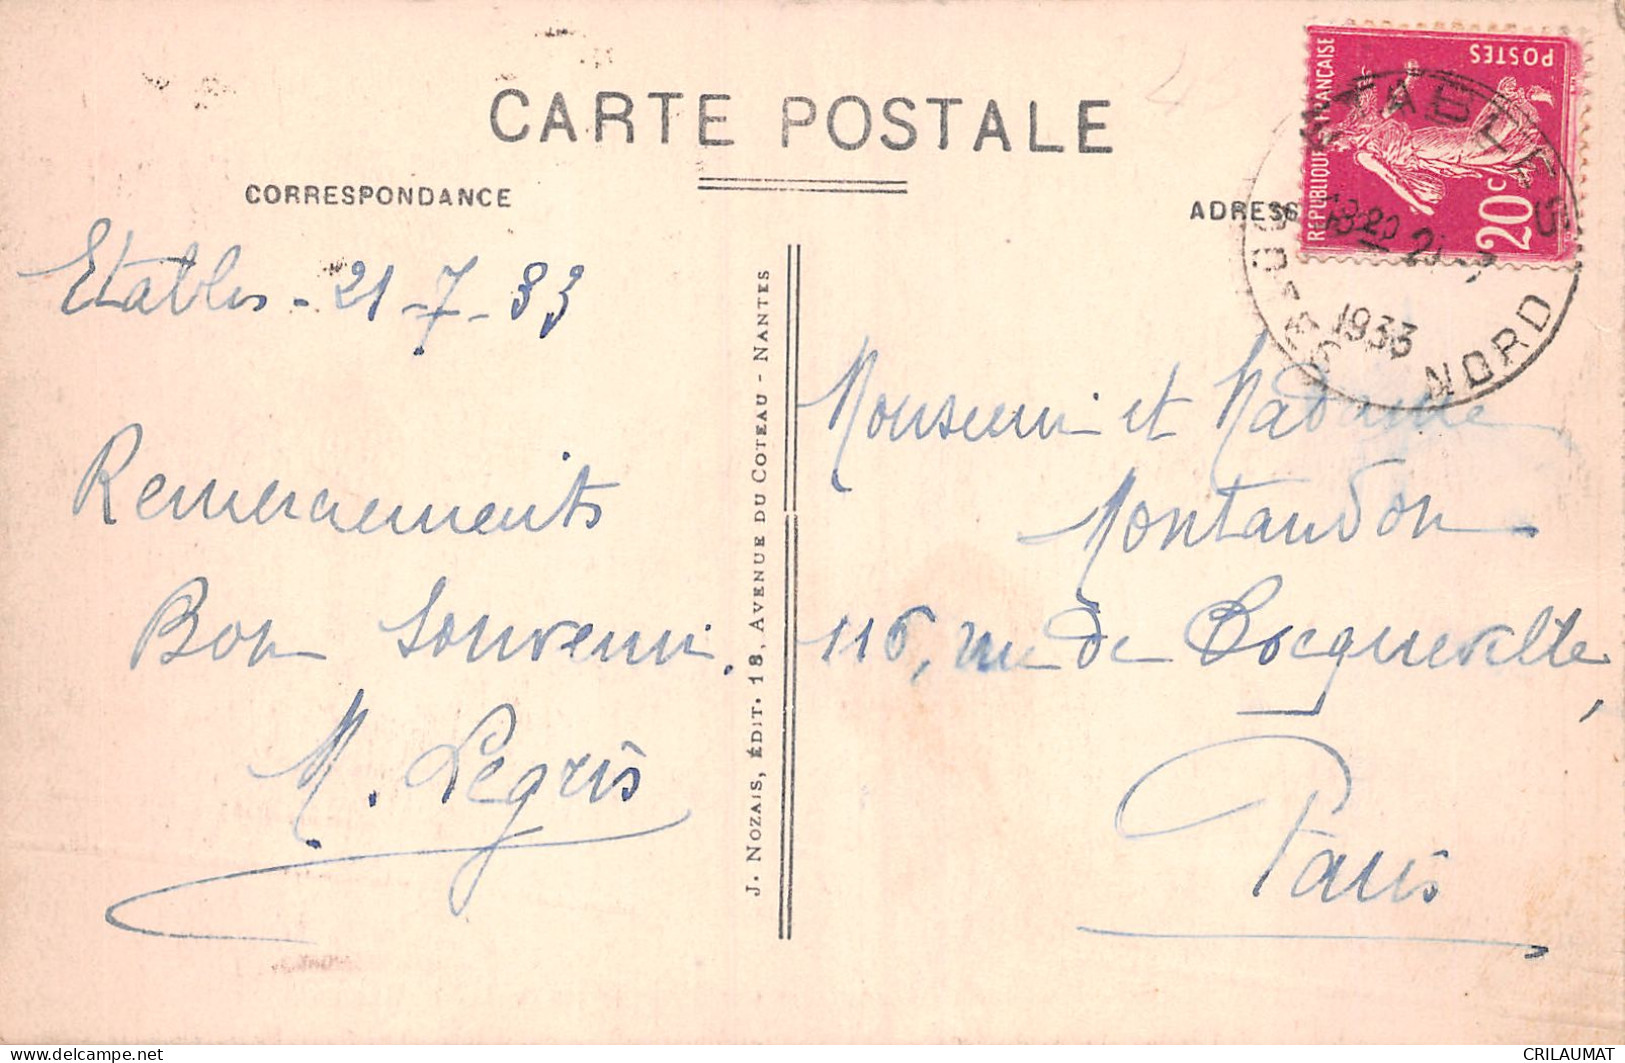 CARTE POSTALE
CORRESPONDANCE
ADRESS
REPUBLIQUE FRANÇAISE
POSTES
20c
ETABLES
COTES-DU-NORD
18-20
21-7
1933
Etables - 21-7-33
Remerciements
Bon Souvenir.
M. Legris
J. NOZAIS, ÉDIT. 18, AVENUE DU COTEAU - NANTES
Monsieur et Madame
Montandon
116, rue de Tocqueville,
Paris
CRILAUMAT